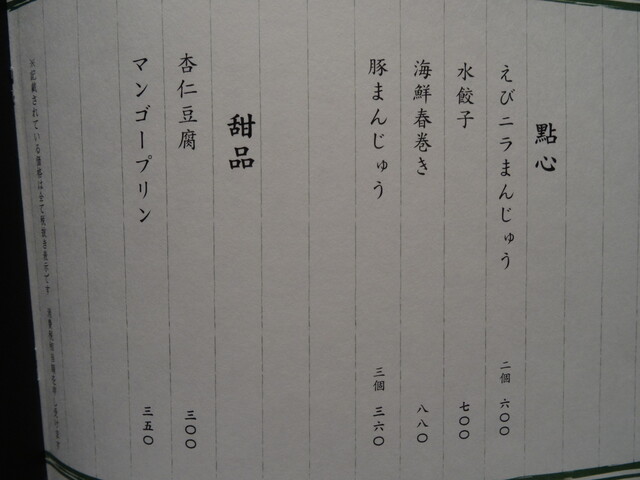 點心
えびニラまんじゅう 二個 六〇〇
水餃子 七〇〇
海鮮春巻き 八八〇
豚まんじゅう 三個 三六〇
甜品
杏仁豆腐 三〇〇
マンゴープリン 三五〇
※記載されている価格は全て税抜き表示です